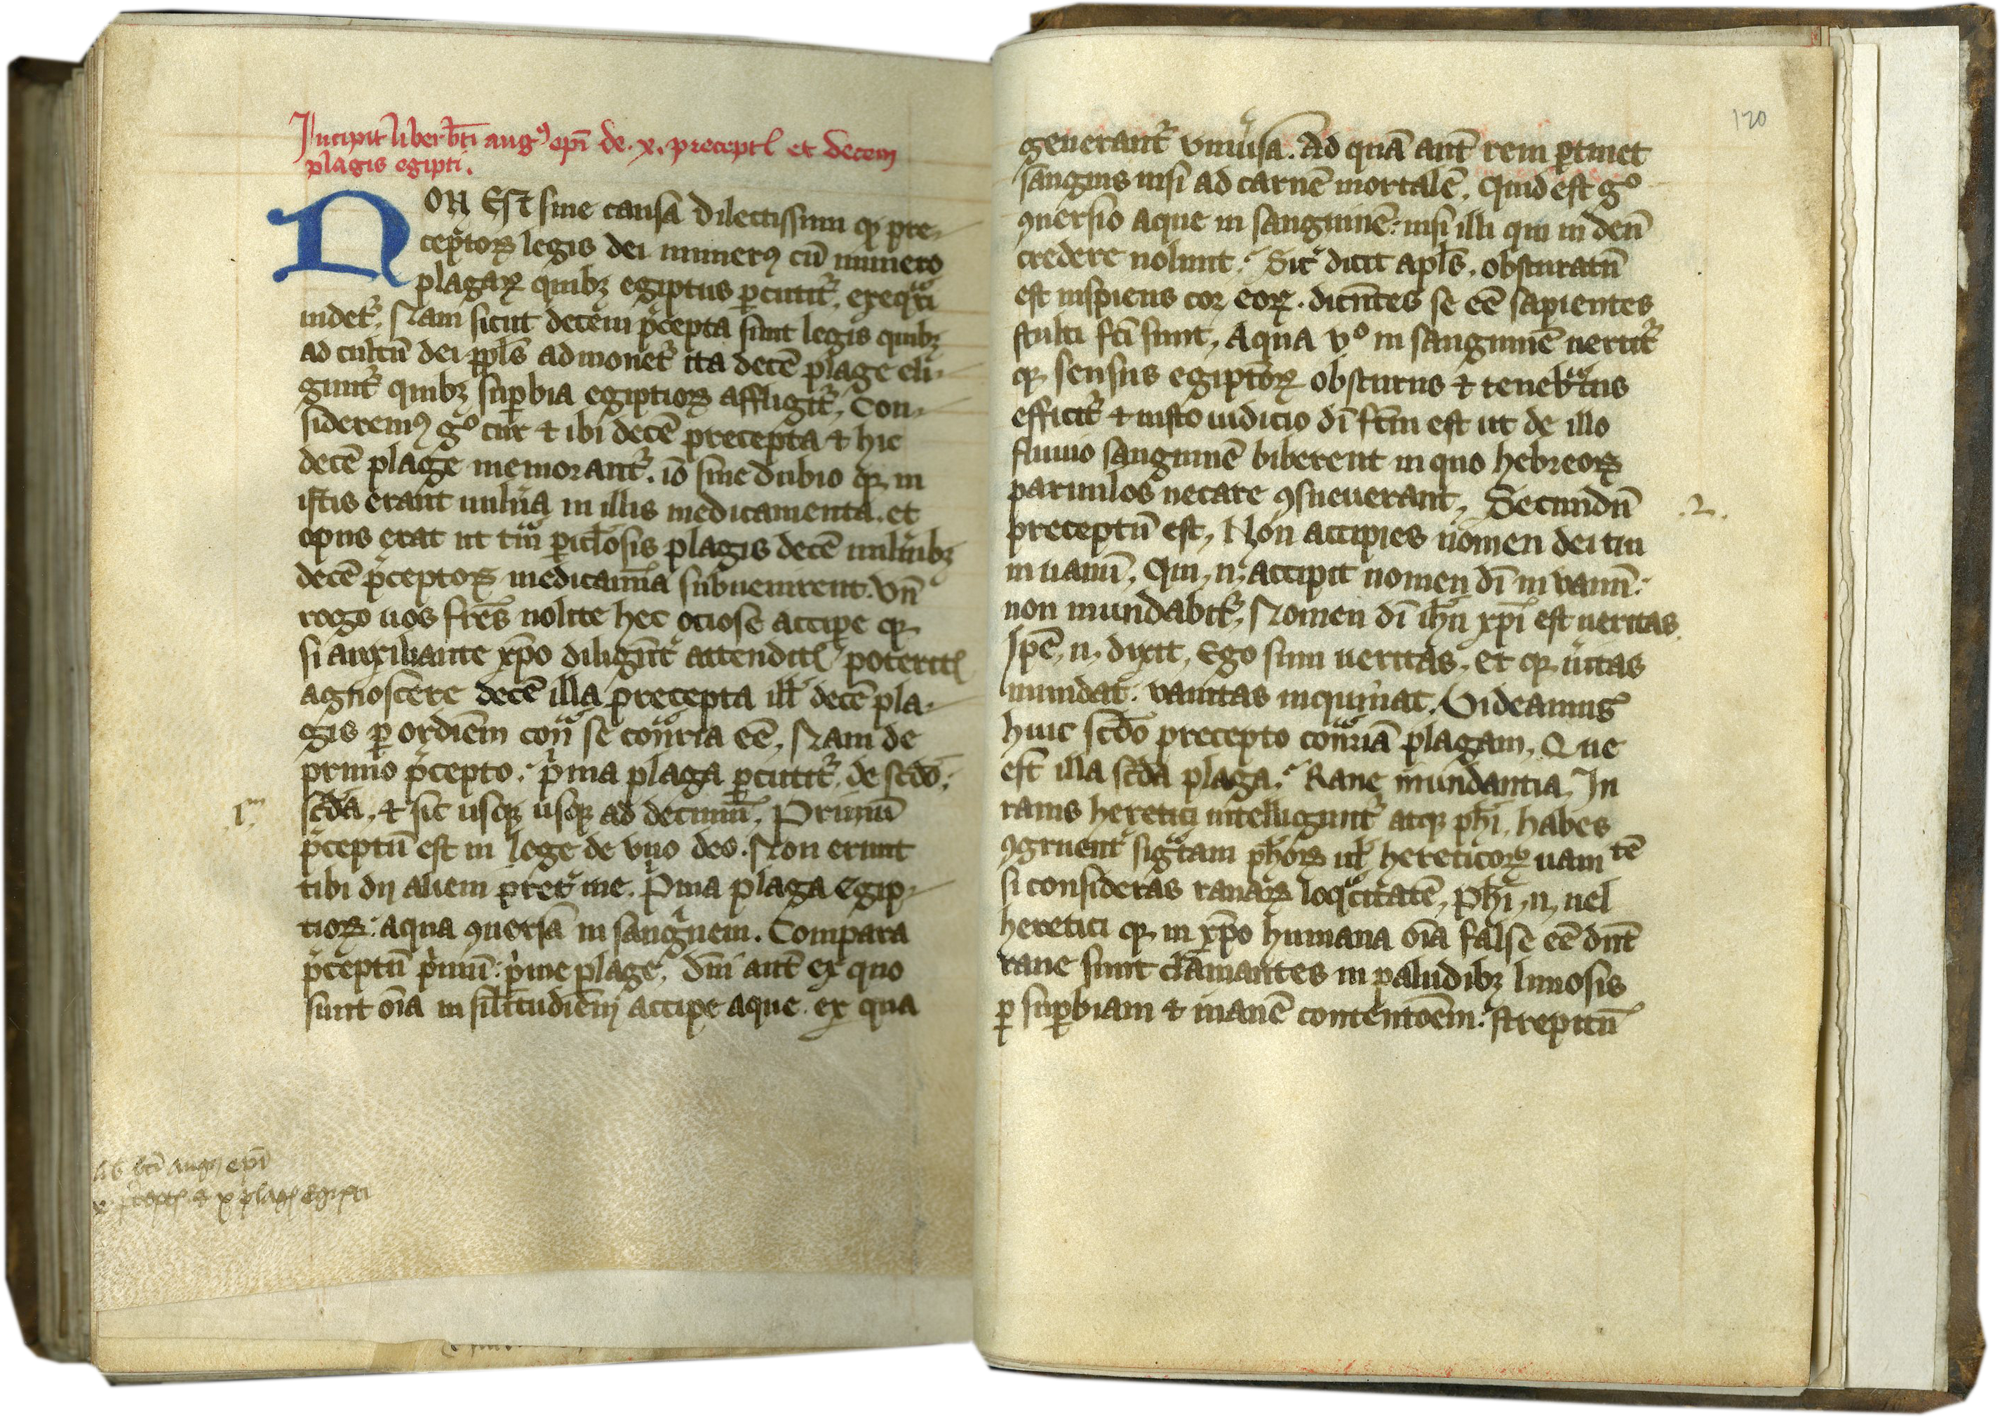 Incipit liber bti aug⁹ epi de .x. precept et decem
plagis egipti.
NON Est sine causa dilectissimi qꝫ pre-
ceptoꝝ legis dei numerꝰ cū numero
plagaꝝ quibꝫ egiptus ꝑcutit᷑ exeqri
uidet᷑. Nam sicut decem p̄cepta sunt legis quibꝫ
ad cultū dei ppl̄s admonet᷑ ita decē plage eli-
gunt᷑ quibꝫ suꝑbia egiptioꝝ affligit᷑. Con-
sideremꝰ gº cur ⁊ ibi decē precepta ⁊ hic
decē plage memorant᷑. iō sine dubio qꝫ in
istis erant uuln̄a in illis medicamenta. et
opus erat ut tm̄ ꝑicl̄osis plagis decē uuln̄ibꝫ
decē p̄ceptoꝝ medicam̄ta subuenirent. Vn̄
rogo uos fr̄es nolite hec ociose accipe qꝫ
si auxiliante xp̄o diligēt᷑ attendit poterit
agnoscere decē illa precepta ill̄ decē pla-
gis ꝑ ordiēm con̄ se con̄ria eē. Nam de
primo p̄cepto. p̄ma plaga ꝑcutit᷑. de scd̄o.
scd̄a. ⁊ sic usqꝫ usqꝫ ad decimū. Primū
.1.m
p̄ceptū est in lege de vno deo. Non erunt
tibi dij alieni pret᷑ me. P̄ma plaga Egip-
tioꝝ. aqua ꝯuersa in sanguem. Compara
p̄ceptū p̄mū: p̄me plage. Dm̄ aut̄ ex quo
sunt oīa in silītudiēm accipe aque. ex qua
lib bti aug⁹ epī
x p̄cept ⁊ x plag egipti
120
generant᷑ vniūsa. Ad quā aut̄ rem ꝑtinet
sanguis nisi ad carnē mortalē. Quid est gº
ꝯuersio aque in sanguinē: nisi illi qui in deū
credere nolunt. Sic᷑ dicit apl̄s. obscuratū
est insipiens cor eoꝝ. dicn̄tes se eē sapientes
stulti fc̄i sunt. Aqua vº in sanguinē uertit᷑
qꝫ sensus egiptioꝝ obscurus ⁊ tenebrosus
efficit᷑ ⁊ iusto iudicio dī fc̄m est ut de illo
fluuio sanguinē biberent in quo hebreoꝝ
paruulos necare ꝯsueuerant. Secundū
.2.
preceptū est. Non accipies nomen dei tui
in uanū. Qui .n. accipit nomen dī in vanū:
non mundabit᷑. Nomen dī ihū xp̄i est ueritas.
Ipē .n. dixit. Ego sum ueritas. et qꝫ ūitas
mundat: vanitas inquinat. Videamus
huic scd̄o precepto con̄riā plagam. Que
est illa scd̄a plaga. Rane inundantia. In
ranis heretici intelligunt᷑ atqꝫ ph̄i. habes
ꝯgruent᷑ sigtam ph̄oꝝ ul̄ hereticoꝝ uanitē
si consideras ranaꝝ loqcitatē. Ph̄i .n. uel
heretici qꝫ in xp̄o humana oīa false eē dn̄t
rane sunt clamantes in paludibꝫ limosis
ꝑ suꝑbiam ⁊ inanē contentōem: strepitū